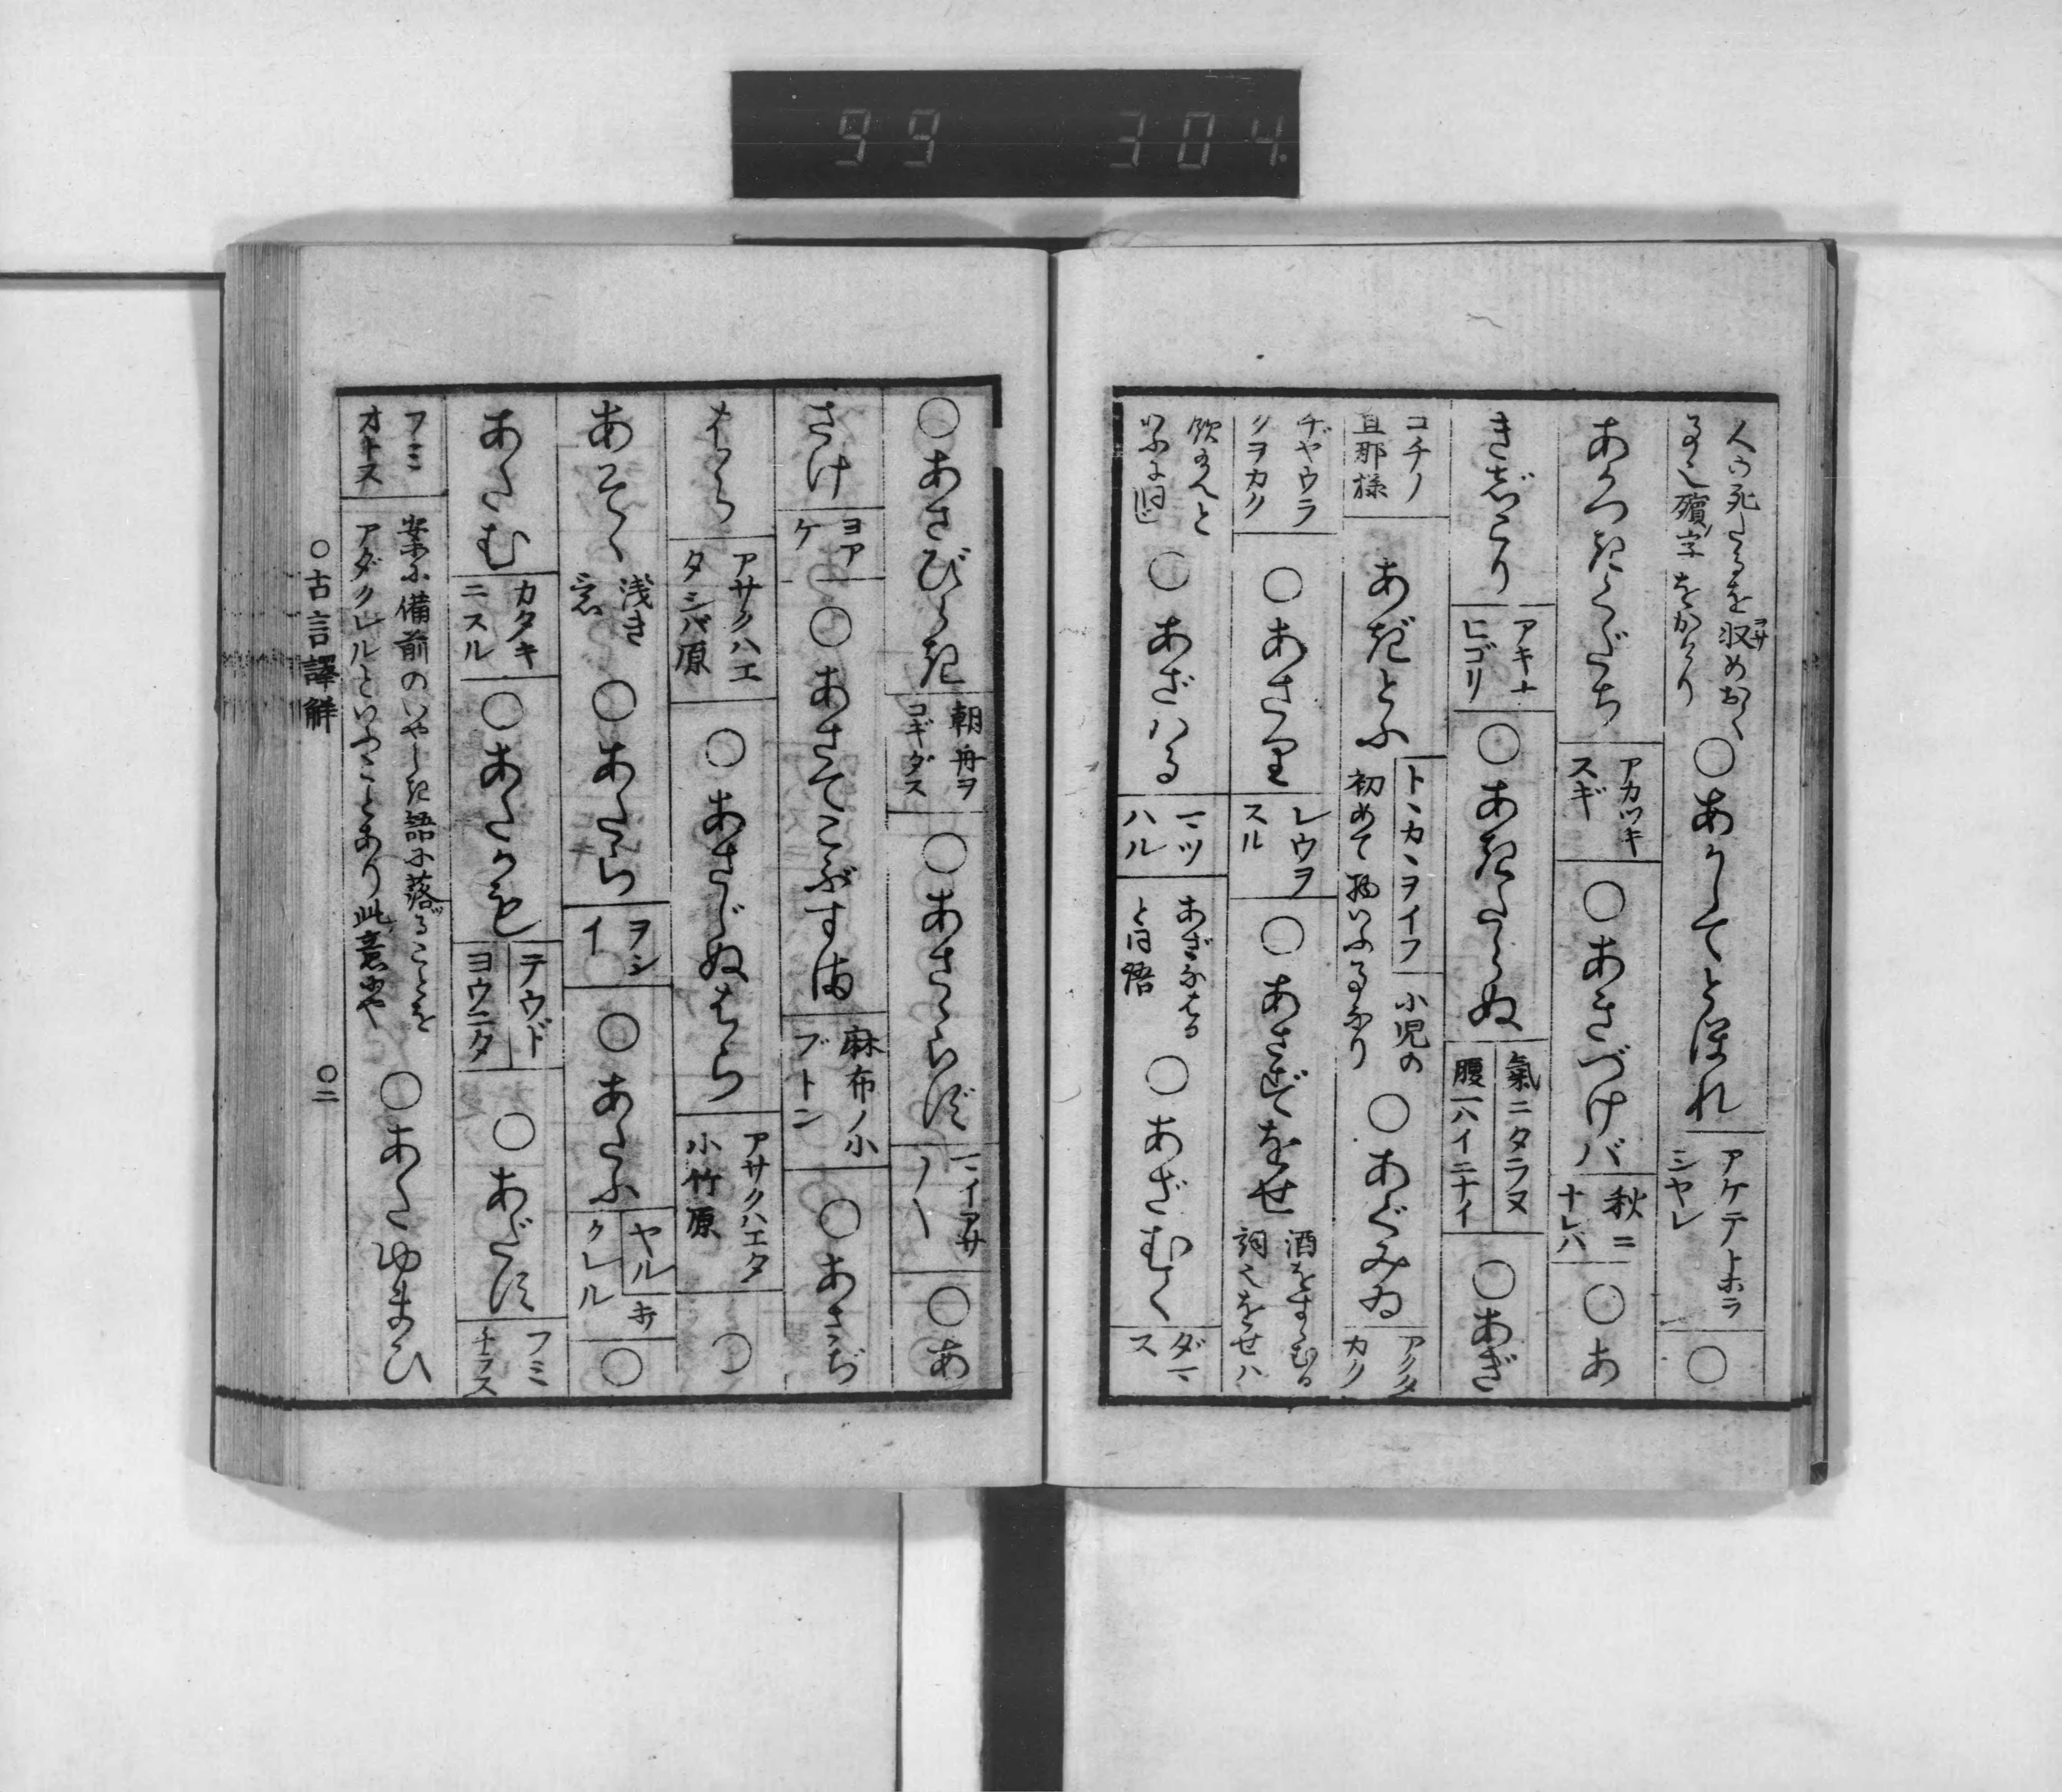 99 304.
人の死たるを収めおく
事也殯字をかけり
○あけてとほれ
アケテトホラ
シヤレ
○
あかつきくだち
アカツキ
スギ
○あきづけバ
秋ニ
ナレハ
○あ
きぢこり
アキナ
ヒゴリ
○あきたらぬ
氣ニタラヌ
腹一ハイニナイ
○あぎ
コチノ
旦那様
あぎとふ
トヽカヽヲイフ
小児の
初めて物いふるなり
○あぐみゐ
アクタ
カク
チヤウラ
クヲカク
○あさり
レウヲ
スル
○あさずをせ
酒をすゝむる
詞也をせハ
飲んと
いふに同じ
○あざハる
マツ
ハル
あざなはる
と同語
○あざむく
ダマ
ス
○あさびらき
朝舟ヲ
コギダス
○あさらず
マイアサ
○あ
さけ
ヨア
ケ
○あさてこぶすま
麻布ノ小
ブトン
○あさぢ
はら
アサクハエ
タシバ原
○あさじぬはら
アサクハエタ
小竹原
○
あそゝ
浅き
意
○あたら
ヲシ
イ
○あたふ
ヤル
クレル
○
あたむ
カタキ
ニスル
○あたかも
テウド
ヨウニタ
○あだす
フミ
チラス
フミ
オトス
案に備前のいやしき語に落ることを
アダクルルといふことあり此意にや
○あたゆまひ
○古言譯解
○二